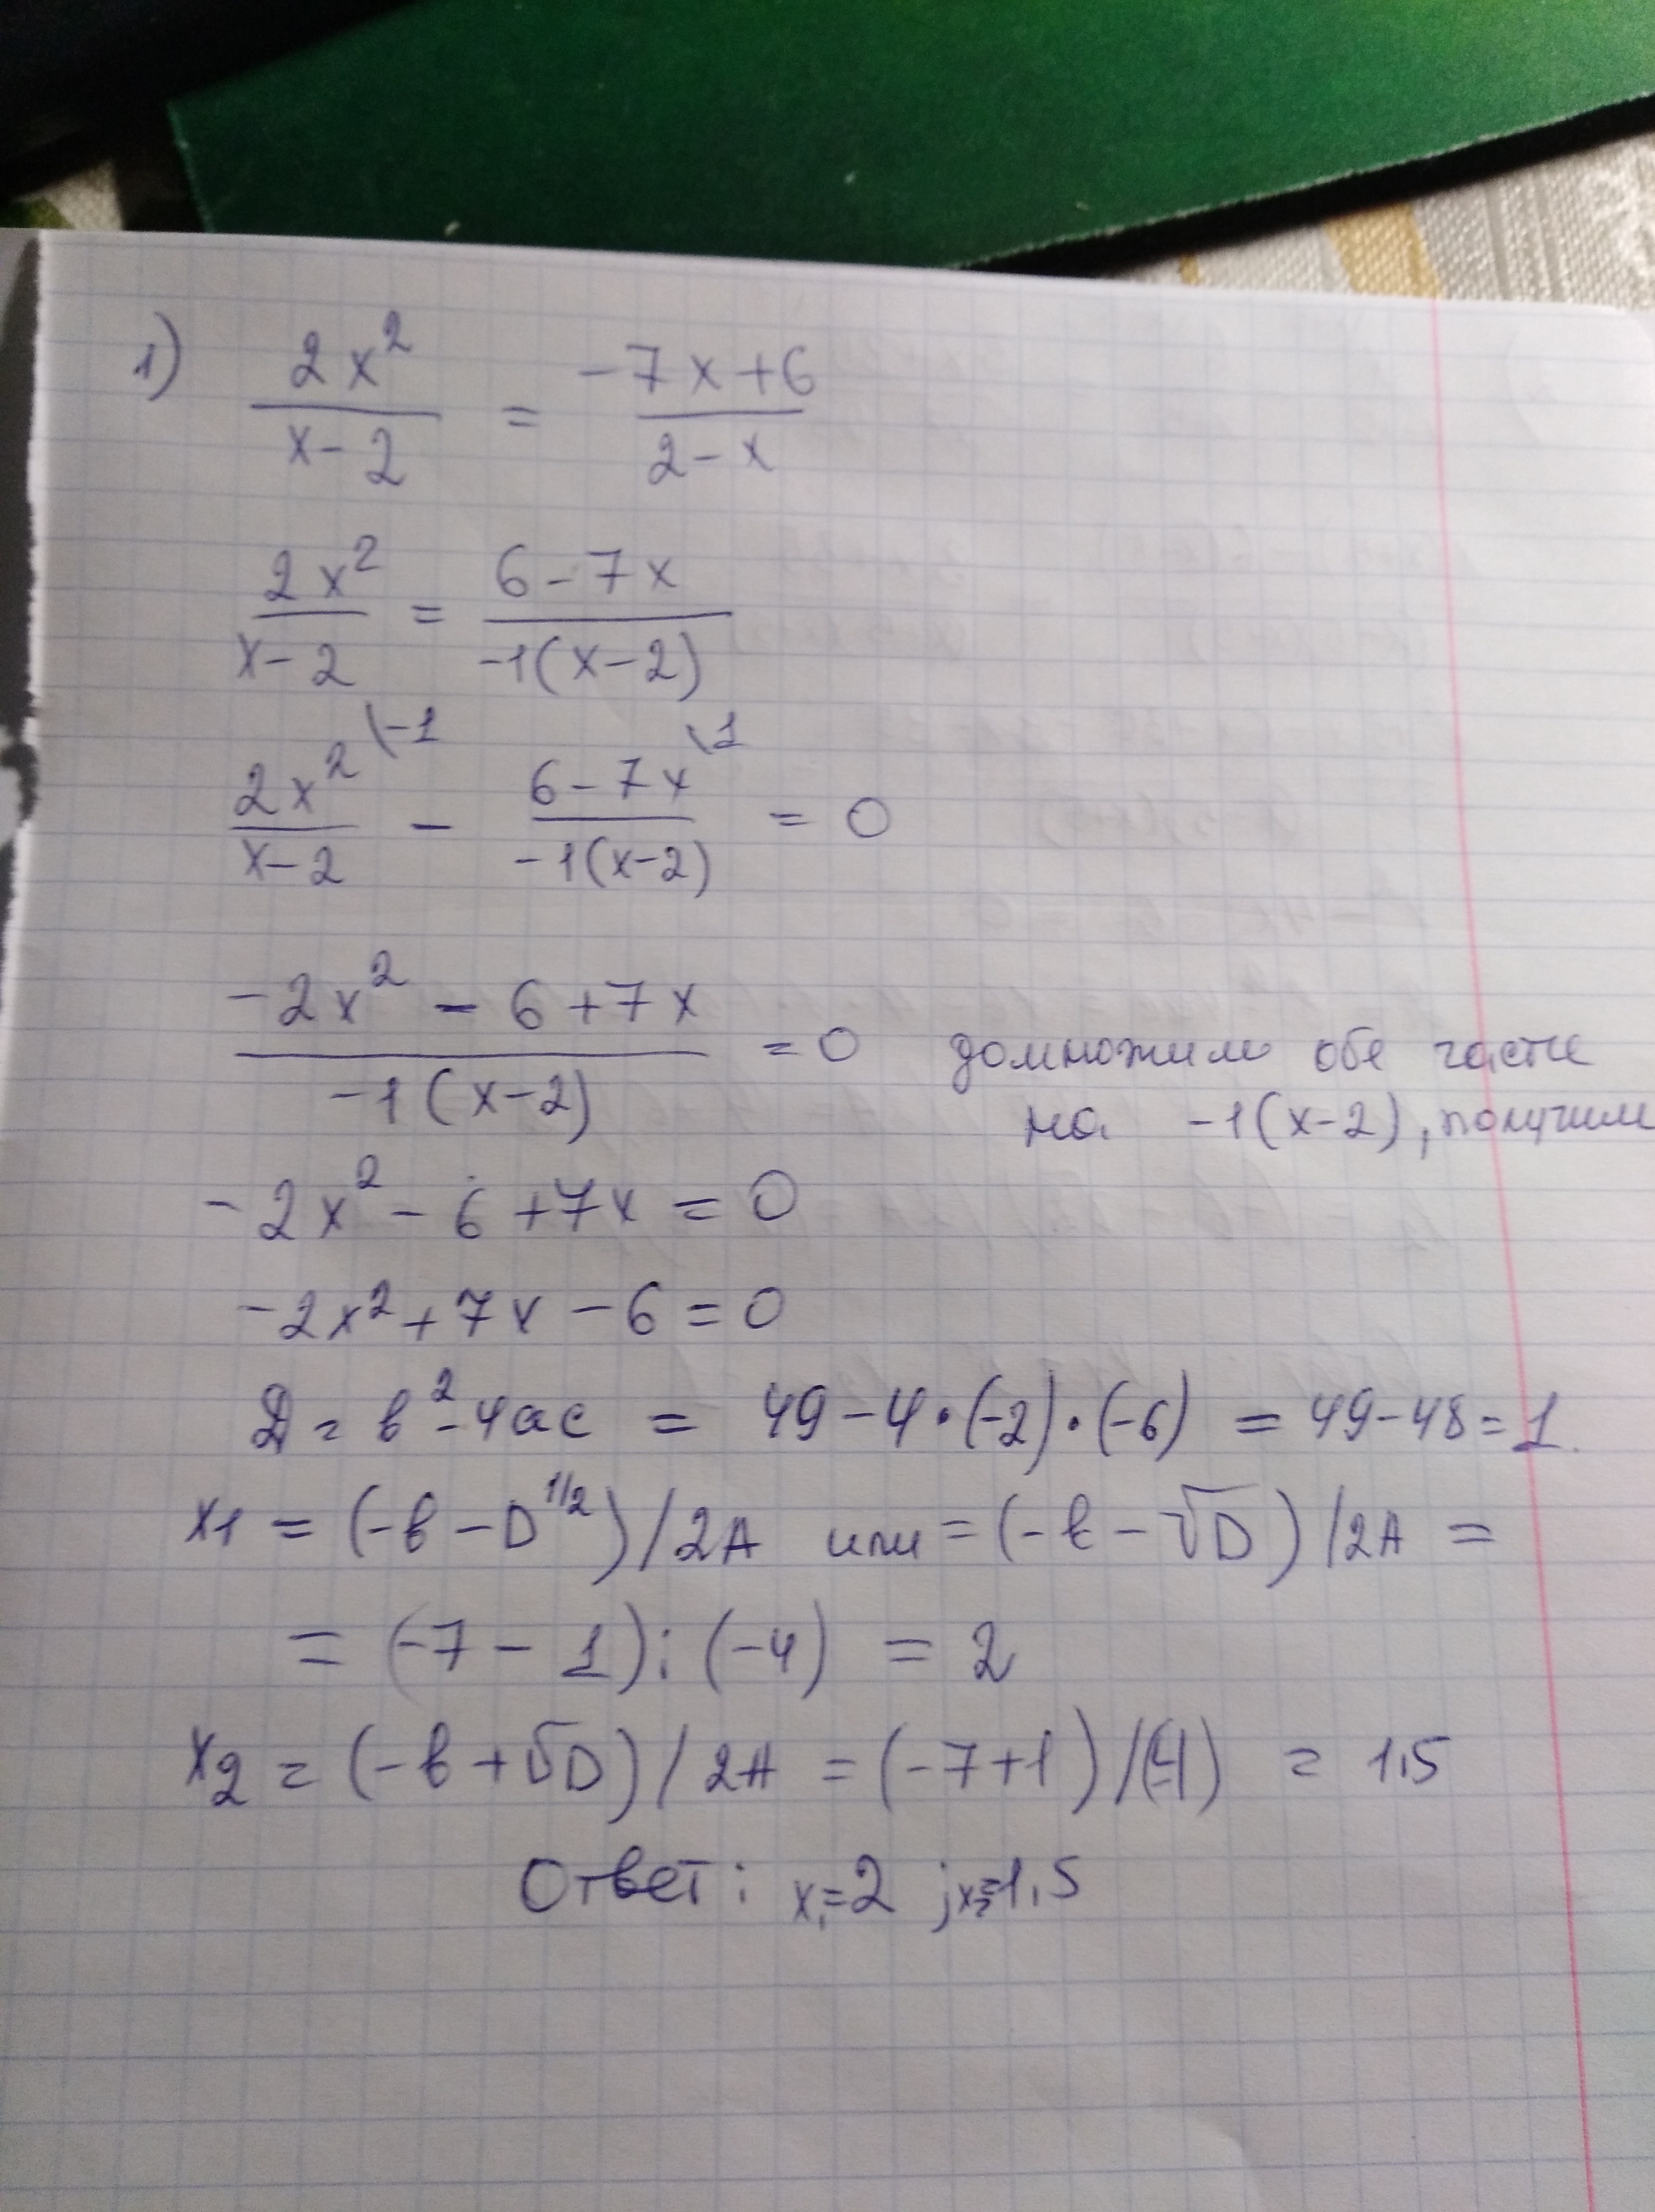 1) 2x² / x-2 = -7x+6 / 2-x
2x² / x-2 = 6-7x / -1(x-2)
2x² \-1 / x-2 - 6-7x \1 / -1(x-2) = 0
-2x² - 6+7x / -1(x-2) = 0 домножим обе части
на -1(x-2), получим
-2x² - 6 +7x = 0
-2x²+7x-6=0
D = в²-4ac = 49-4·(-2)·(-6) = 49-48=1.
x1 = (-в-D^1/2)/2A или = (-в-√D)/2A =
= (-7-1):(-4) = 2
x2 = (-в+√D)/2A = (-7+1)/(-4) = 1,5
Ответ: x₁=2 ; x₂=1,5